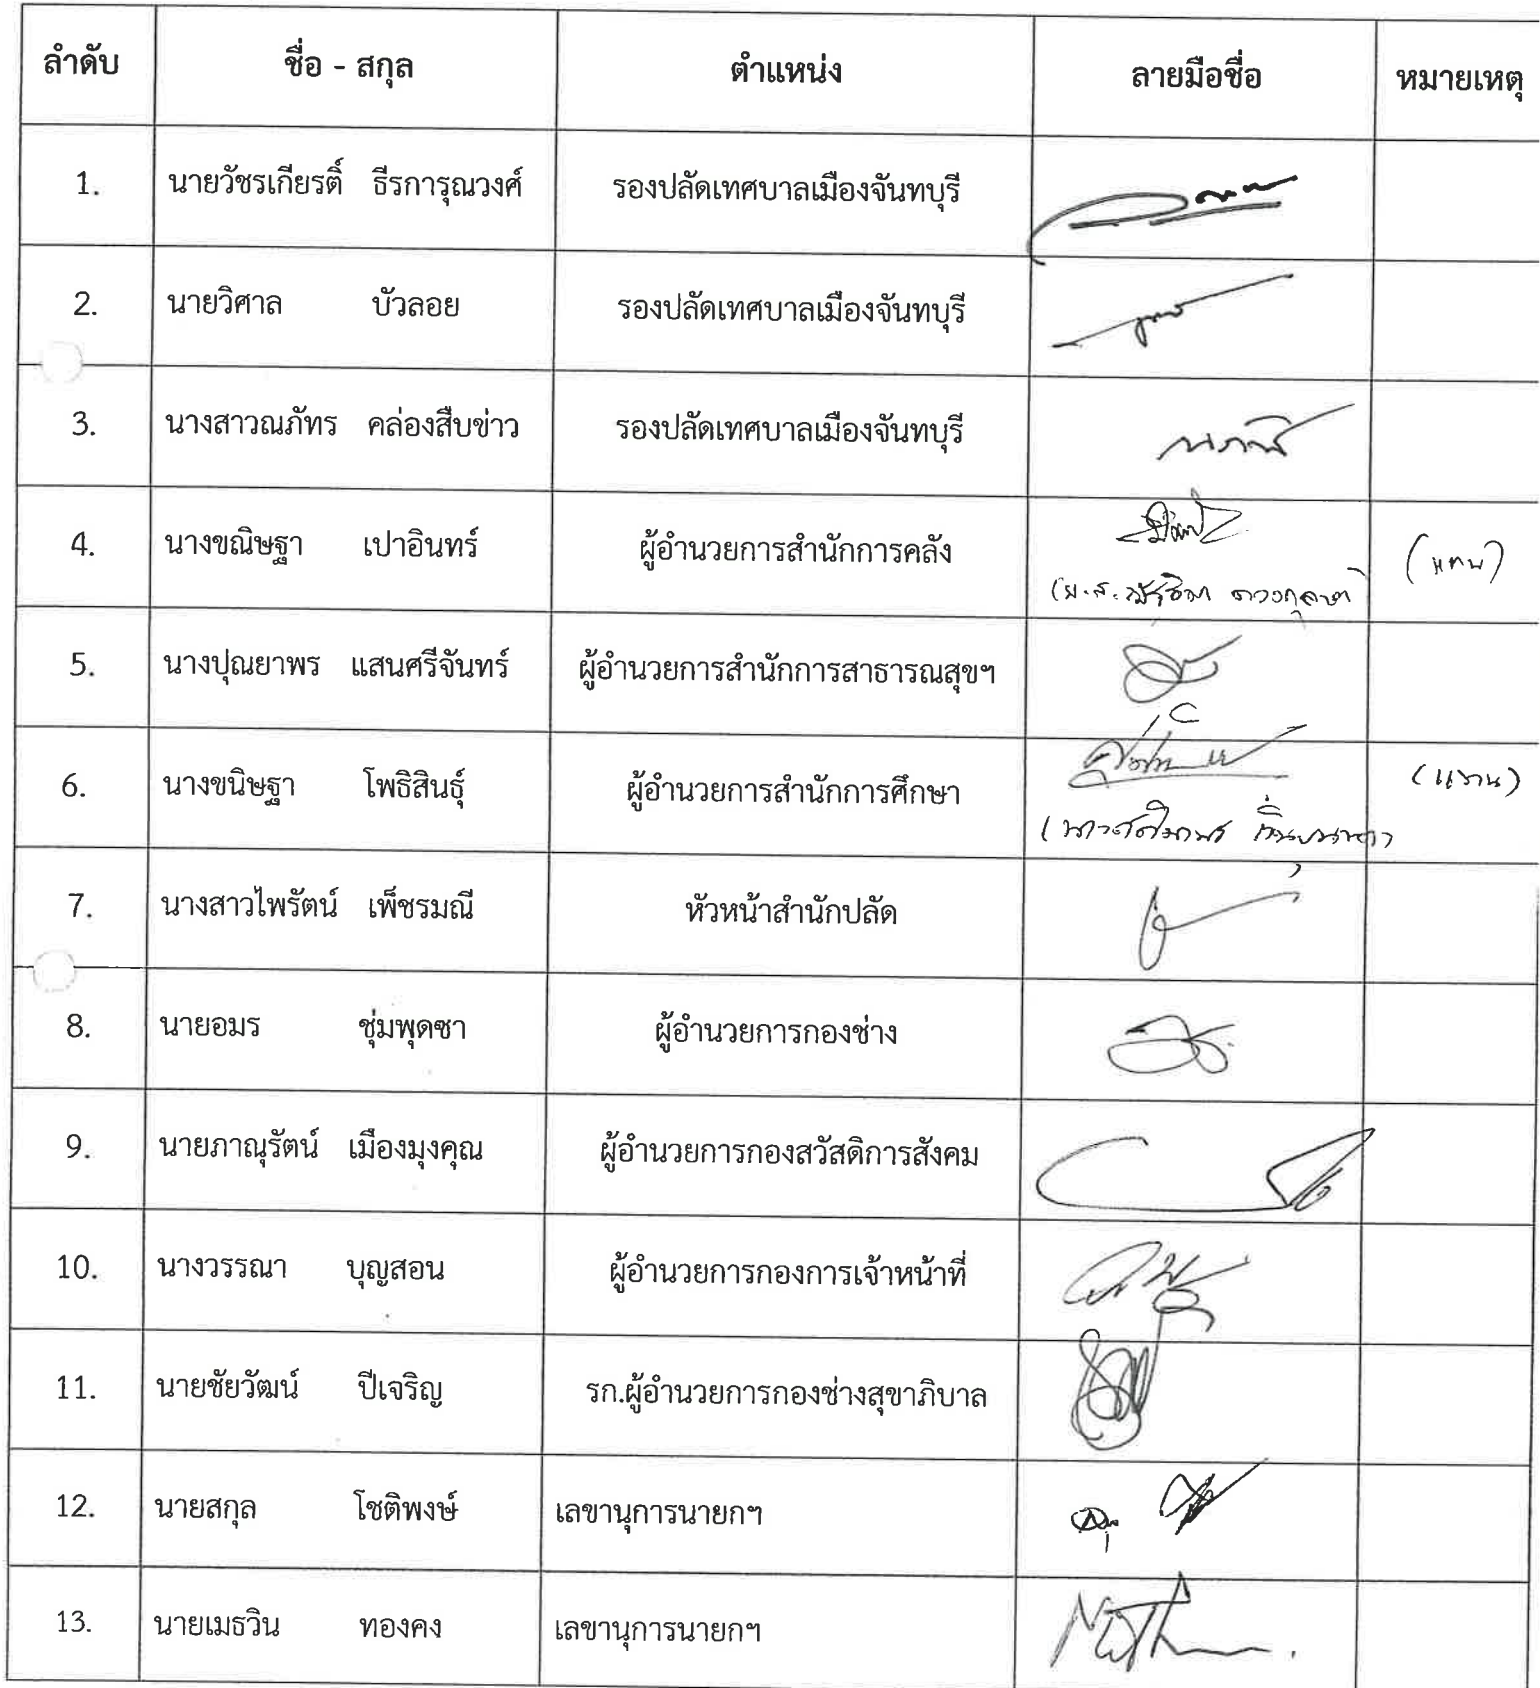 ลำดับ ชื่อ - สกุล ตำแหน่ง ลายมือชื่อ หมายเหตุ
1. นายวัชรเกียรติ์ ธีรการุณวงศ์ รองปลัดเทศบาลเมืองจันทบุรี
2. นายวิศาล บัวลอย รองปลัดเทศบาลเมืองจันทบุรี
3. นางสาวณภัทร คล่องสืบข่าว รองปลัดเทศบาลเมืองจันทบุรี
4. นางขณิษฐา เปาอินทร์ ผู้อำนวยการสำนักการคลัง (แทน)
5. นางปุณยาพร แสนศรีจันทร์ ผู้อำนวยการสำนักการสาธารณสุขฯ
6. นางขนิษฐา โพธิสินธุ์ ผู้อำนวยการสำนักการศึกษา (แทน)
7. นางสาวไพรัตน์ เพ็ชรมณี หัวหน้าสำนักปลัด
8. นายอมร ชุ่มพุดซา ผู้อำนวยการกองช่าง
9. นายภาณุรัตน์ เมืองมุงคุณ ผู้อำนวยการกองสวัสดิการสังคม
10. นางวรรณา บุญสอน ผู้อำนวยการกองการเจ้าหน้าที่
11. นายชัยวัฒน์ ปีเจริญ รก.ผู้อำนวยการกองช่างสุขาภิบาล
12. นายสกุล โชติพงษ์ เลขานุการนายกฯ
13. นายเมธวิน ทองคง เลขานุการนายกฯ